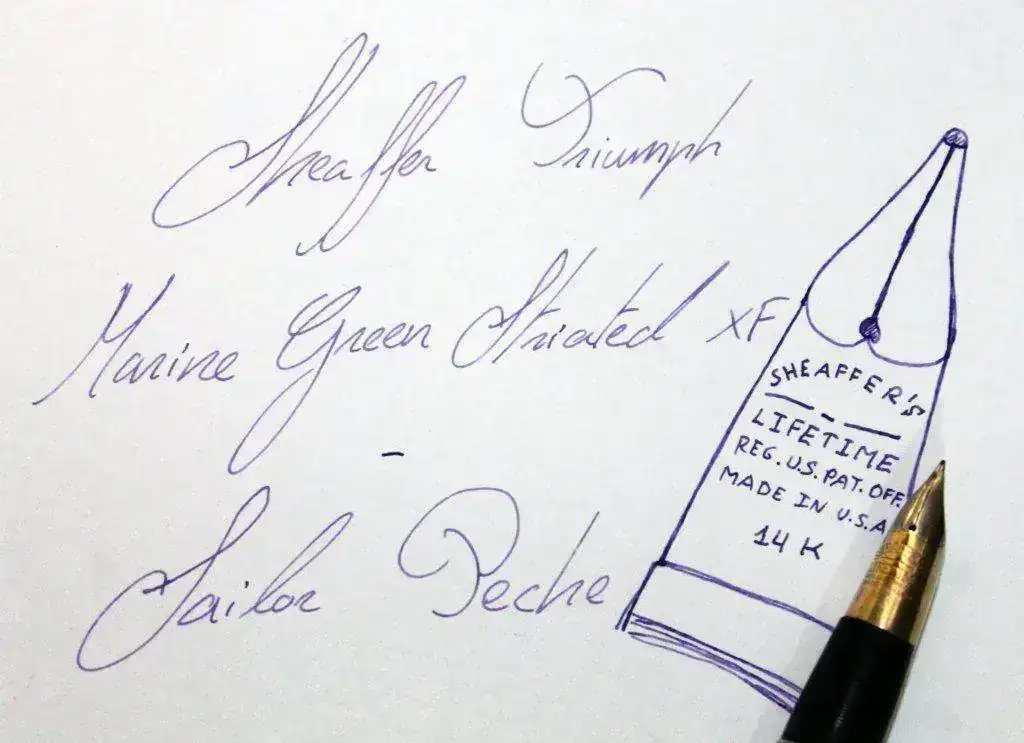 Sheaffer Triumph
Marine Green Striated XF
-
Sailor Peche
SHEAFFER'S
LIFETIME
REG. U.S. PAT. OFF.
MADE IN U.S.A
14 K